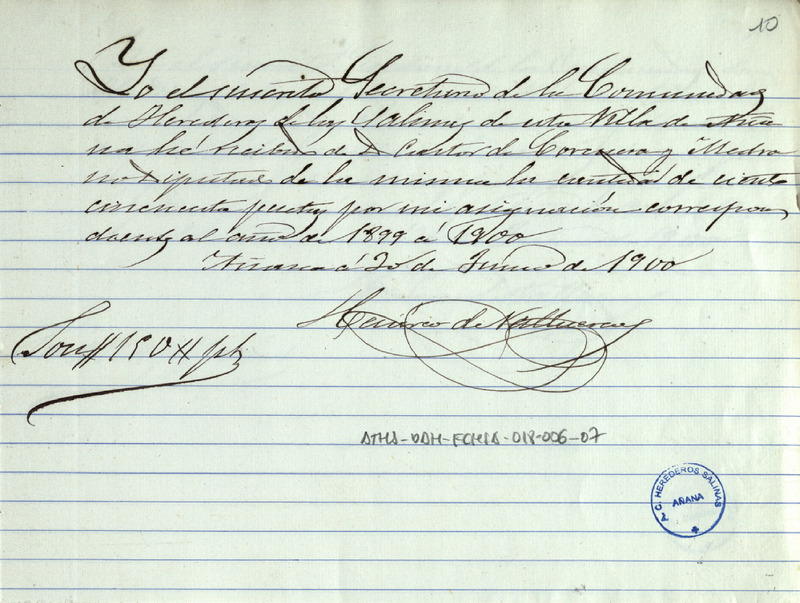 10
Yo el suscrito Secretario de la Comunidad
de Herederos de las Salinas de esta Villa de Aña
na hé recibido de D Castor de Corcuera y Medra
no Diputado de la misma la cantidad de ciento
cincuenta pesetas por mi asignación correspon
diente al año de 1899 á 1900
Añana á 20 de Junio de 1900
de Valluerca
Son # 150 # pts
ATHA-DAH-FCHSA-018-006-07
C. HEREDEROS SALINAS
AÑANA